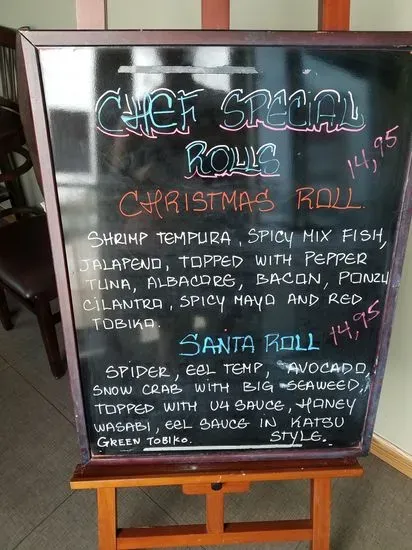 CHEF SPECIAL
ROLLS
14,95
CHRISTMAS ROLL
SHRIMP TEMPURA, SPICY MIX FISH,
JALAPENO, TOPPED WITH PEPPER
TUNA, ALBACORE, BACON, PONZU
CILANTRO, SPICY MAYO AND RED
TOBIKO.
14,95
SANTA ROLL
SPIDER, EEL TEMP, AVOCADO,
SNOW CRAB WITH BIG SEAWEED,
TOPPED WITH U4 SAUCE, HONEY
WASABI, EEL SAUCE IN KATSU
GREEN TOBIKO. STYLE.